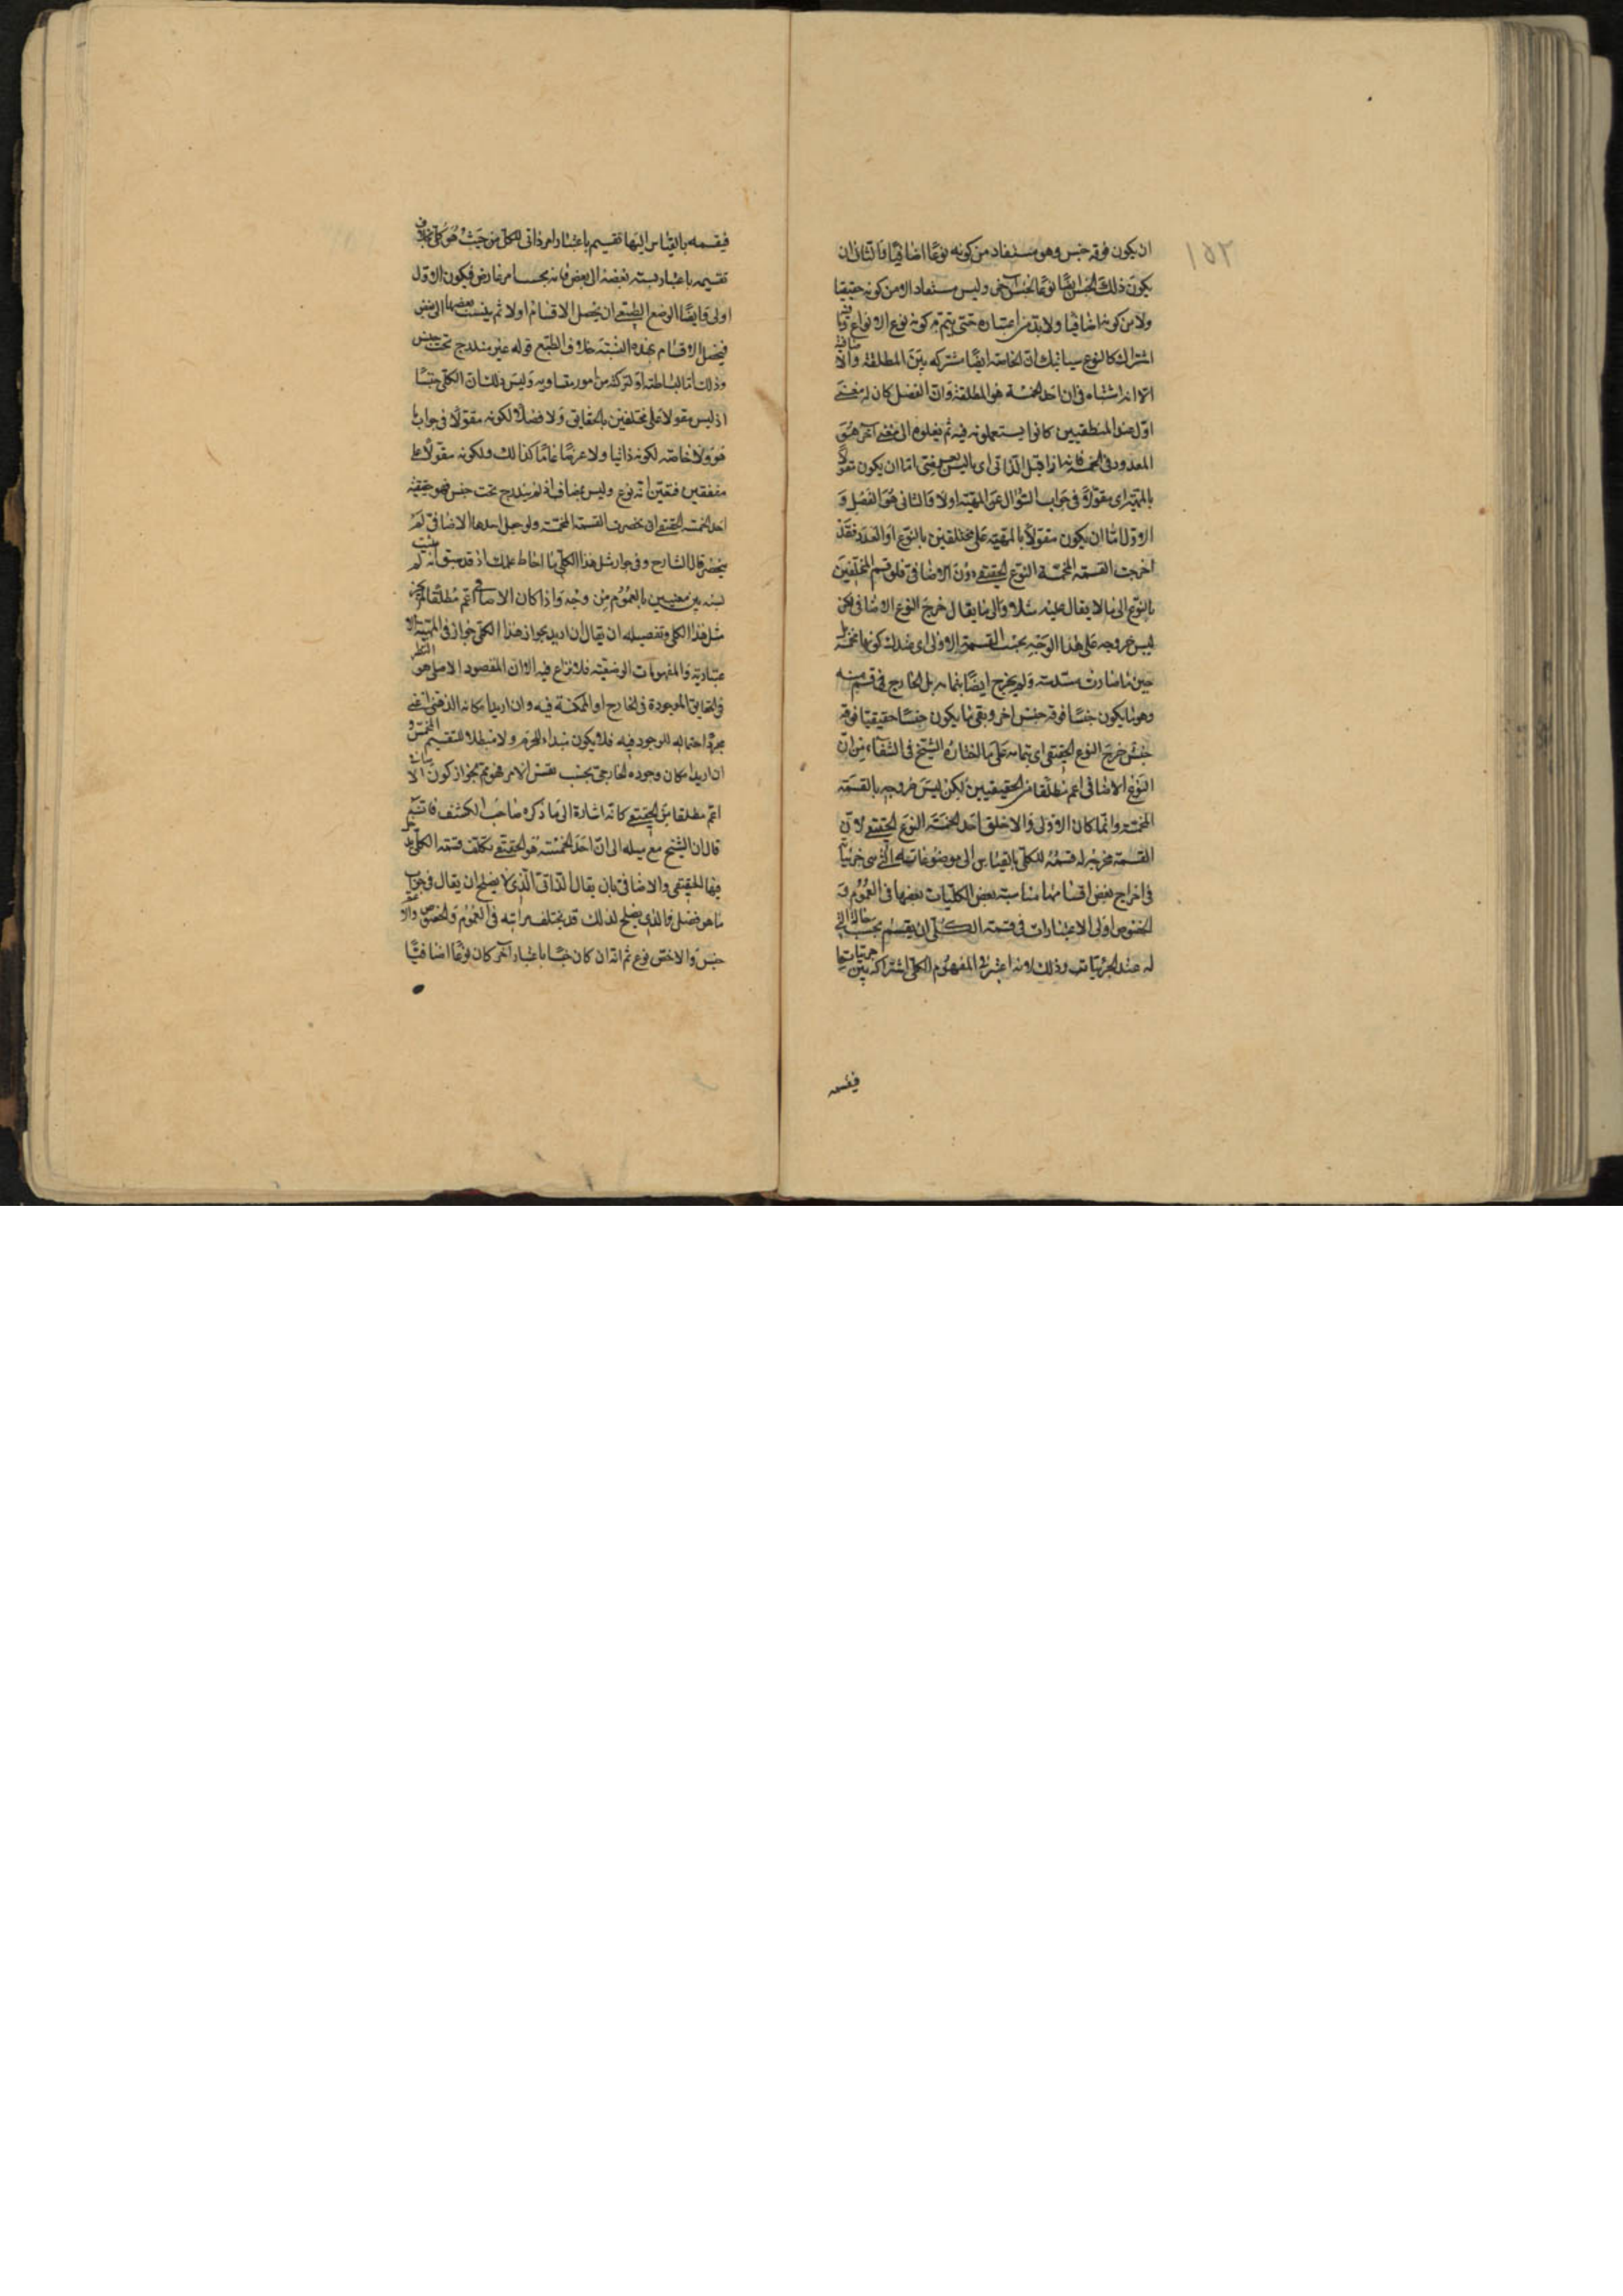 ١٥٢
ان يكون فوقه جنس وهو مستفاد من كونه نوعا اضافيا والثانى ان
يكون ذلك الجنس ايضا نوعا لجنس آخر وليس مستفادا لا من كونه حقيقيا
ولا من كونه اضافيا ولا بد من اعتباره حتى يتم كونه نوع الانواع
اشتراك كالنوع سياتيك ان الخاصة ايضا مشتركه بين المطلقة والاضافية
الا انه اشتباه فى ان احد الخمسة هو المطلقة وان الفصل كان له معنى
اول عند المنطقيين كانوا يستعملونه فيه ثم نقلوه الى معنى آخر هو
المعدود فى الخمسة قبل الذاتى اى ما ليس بعرضى اما ان يكون مقولا
بالمهية اى مقولا فى جواب السؤال عن المهية اولا والثانى هو الفصل و
الاول اما ان يكون مقولا بالمهية على مختلفين بالنوع او العدد فقد
اخرجت القسمة المخمسة النوع الحقيقى دون الاضافى فلو قسم المختلفين
بالنوع الى ما لا يقال عليه مثلا والى ما يقال خرج النوع الاضافى لكن
ليس خروجه على هذا الوجه بحسب القسمة الاولى اى عند كونها مخمسة
حين ما صارت مسدسة ولم يخرج ايضا بتمامه بل الخارج فى قسم منه
وهو ما يكون جنسا فوقه جنس اخر وبقى ما يكون جنسا حقيقيا فوقه
جنس خرج النوع الحقيقى اى بتمامه على ما اختاره الشيخ فى الشفاء من ان
النوع الاضافى اعم مطلقا من الحقيقيين لكن ليس خروجه بالقسمة
المخمسة وانما كان الاولى والاخلق احد الخمسة النوع الحقيقى لان
القسمة مخرجه له قسمة للكلى بالقياس الى موضوعاته التى هى جزئياته
فى اخراج بعض اقسامها مناسبة بعض الكليات بعضها فى العموم و
الخصوص اولى الاعتبارات فى قسمة الكلى ان يقسم بحسب حاله التى
له عند الجزئيات وذلك لانه اعتبر فى المفهوم الكلى اشتراكه بين جزئياتها
فيقسمه
فيقسمه بالقياس اليها تقسيم باعتبار امر ذاتى للكلى من حيث هو كلى بخلاف
تقسيمه باعتبار نسبة بعضه الى بعض فانه بحسب امر عارض فيكون الاول
اولى وايضا الوضع الطبيعى ان يحصل الاقسام اولا ثم ينسب بعضها الى بعض
فيحصل الاقسام بهذه النسبة خلاف الطبع قوله غير مندرج تحت جنس
وذلك اما لبساطته او لتركبه من امور متساوية وليس ذلك ان الكلى جنسا
اذ ليس مقولا على مختلفين بالحقايق ولا فصلا لكونه مقولا فى جواب ما
هو ولا خاصة لكونه ذاتيا ولا عرضا عاما كذالك ولكونه مقولا على
متفقين فتعين انه نوع وليس بمضاف اذ لم يندرج تحت جنس فهو حقيقى
احد الخمسة الحقيقى انحصرت القسمة المخمسة ولو جعل احدها الاضافى لم
ينحصر قال الشارح وفى جواز مثل هذا الكلى ما احاط علمك اذ قد سبق انه لم يثبت
نسبه بين معنيين بالعموم من وجه واذا كان الاضافى اعم مطلقا لم يجز
مثل هذا الكلى وتفصيله ان يقال ان اريد بجواز هذا الكلى جوازه فى المهية الا
عتبارية والمفهومات الوضعية فلا نزاع فيه الا ان المقصود الاصلى هو النظر
فى الحقايق الموجودة فى الخارج او الممكنة فيه وان اريد امكانه الذهنى اعنى
مجرد احتماله للوجود فيه فلا يكون مبداء للجزم ولا مبطلا للتقسيم المخمس و
ان اريد امكان وجوده الخارجى بحسب نفس الامر فهو ثم بجواز كون الاضافى
اعم مطلقا من الحقيقى كانه اشارة الى ما ذكره صاحب الكشف فانه
قال ان الشيخ مع ميله الى ان احد الخمسة هو الحقيقى تكلف قسمة الكلى
فيها الحقيقى والاضافى بان يقال الذاتى الذى لا يصلح ان يقال فى جواب
ما هو فصل والذى يصلح لذلك قد يختلف مراتبه فى العموم والخصوص والاعم
جنس والاخص نوع ثم انه ان كان جنسا باعتبار آخر كان نوعا اضافيا